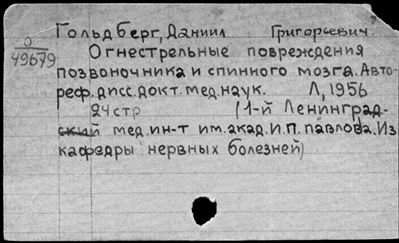 Гольдберг, Даниил Григорьевич
О
49679
Огнестрельные повреждения
позвоночника и спинного мозга. Авто-
реф. дисс. докт. мед. наук. Л, 1956
24 стр (1-й Ленинград-
ский мед. ин-т им. акад. И. П. Павлова. Из
кафедры нервных болезней)